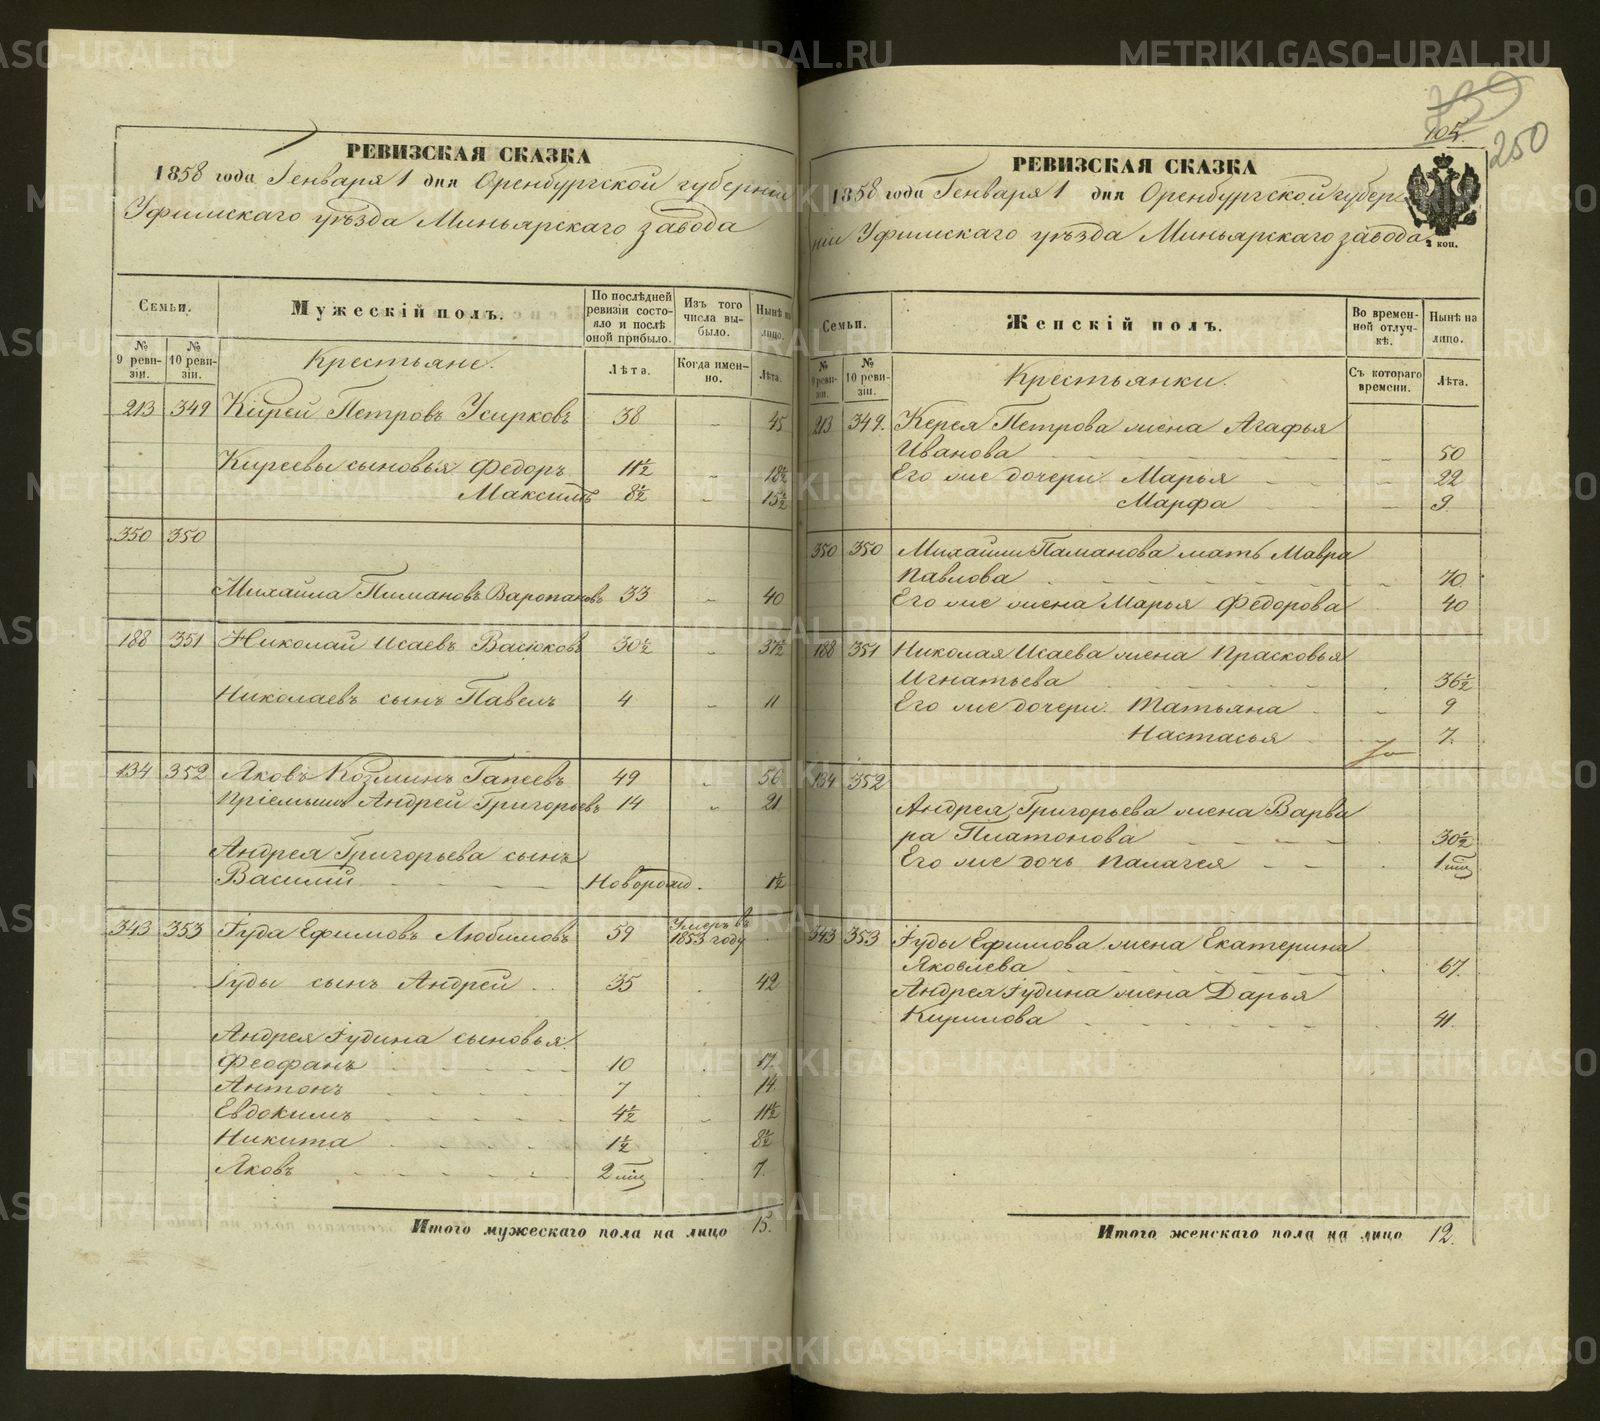 РЕВИЗСКАЯ СКАЗКА
1858 года Генваря 1 дня Оренбургской губерніи
Уфимскаго уѣзда Миньярскаго завода
Семьи.
Мужескій полъ.
По послѣдней ревизіи состояло и послѣ оной прибыло.
Изъ того числа выбыло.
Нынѣ на лицо.
№ 9 ревизіи.
№ 10 ревизіи.
Крестьяне.
Лѣта.
Когда именно.
Лѣта.
213 349 Кирей Петровъ Усирковъ 38 45
Киреевы сыновья Федоръ 11½ 18½
Максимъ 8½ 15½
350 350
Михаила Пимановъ Варопановъ 33 40
188 351 Николай Исаевъ Васюковъ 30½ 37½
Николаевъ сынъ Павелъ 4 11
134 352 Яковъ Козминъ Гапеевъ 49 56
Пріемышъ Андрей Григорьевъ 14 21
Андрея Григорьева сынъ
Василій Новорожд. 1½
343 353 Іуда Ефимовъ Любимовъ 59 Умеръ въ 1853 году
Іуды сынъ Андрей 35 42
Андрея Іудина сыновья
Феофанъ 10 17
Антонъ 7 14
Евдокимъ 4½ 11½
Никита 1½ 8½
Яковъ 2 мѣс 7.
Итого мужескаго пола на лицо 15.
105.
250
РЕВИЗСКАЯ СКАЗКА
1858 года Генваря 1 дня Оренбургской губер
ніи Уфимскаго уѣзда Миньярскаго завода
2 коп.
Семьи.
Женскій полъ.
Во временной отлучкѣ.
Нынѣ на лицо.
№ 9 ревизіи.
№ 10 ревизіи.
Крестьянки.
Съ котораго времени.
Лѣта.
213 349. Керея Петрова жена Агафья
Иванова 50
Его же дочери Марья 22
Марфа 9
350 350 Михаилы Паманова мать Мавра
Павлова 70
Его же жена Марья Федорова 40
188 351 Николая Исаева жена Прасковья
Игнатьева 36½
Его же дочери Татьяна 9
Настасья 7.
134 352
Андрея Григорьева жена Варва
ра Платонова 30½
Его же дочь Палагея 1 мѣс
343 353 Іуды Ефимова жена Екатерина
Яковлева 67.
Андрея Іудина жена Дарья
Кирилова 41.
Итого женскаго пола на лицо 12.
METRIKI.GASO-URAL.RU